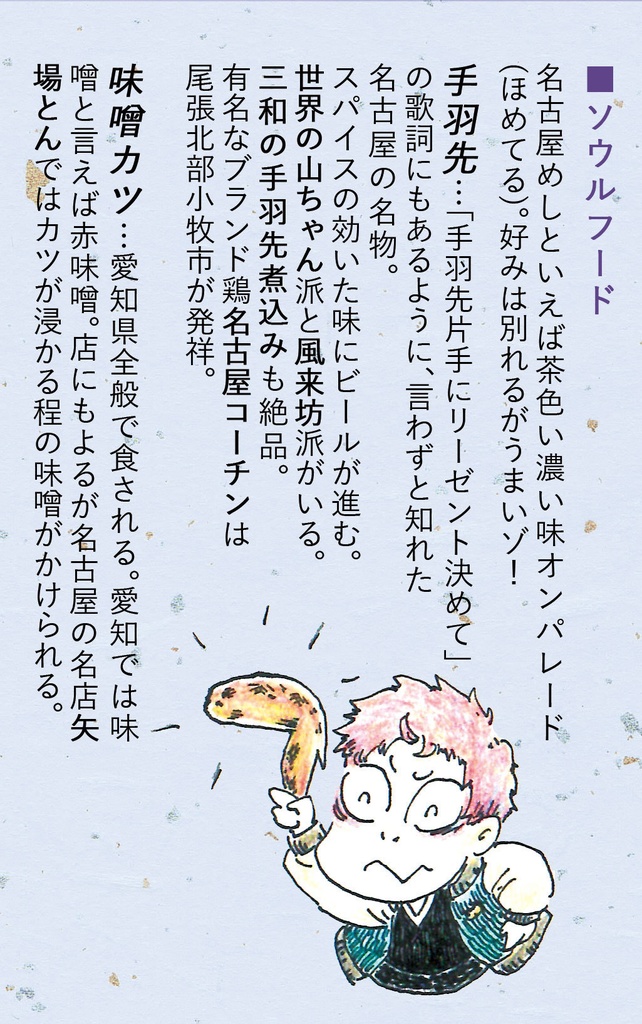 ■ソウルフード
名古屋めしといえば茶色い濃い味オンパレード
(ほめてる)。好みは別れるがうまいゾ！
手羽先…「手羽先片手にリーゼント決めて」
の歌詞にもあるように、言わずと知れた
名古屋の名物。
スパイスの効いた味にビールが進む。
世界の山ちゃん派と風来坊派がいる。
三和の手羽先煮込みも絶品。
有名なブランド鶏名古屋コーチンは
尾張北部小牧市が発祥。
味噌カツ…愛知県全般で食される。愛知では味
噌と言えば赤味噌。店にもよるが名古屋の名店矢
場とんではカツが浸かる程の味噌がかけられる。